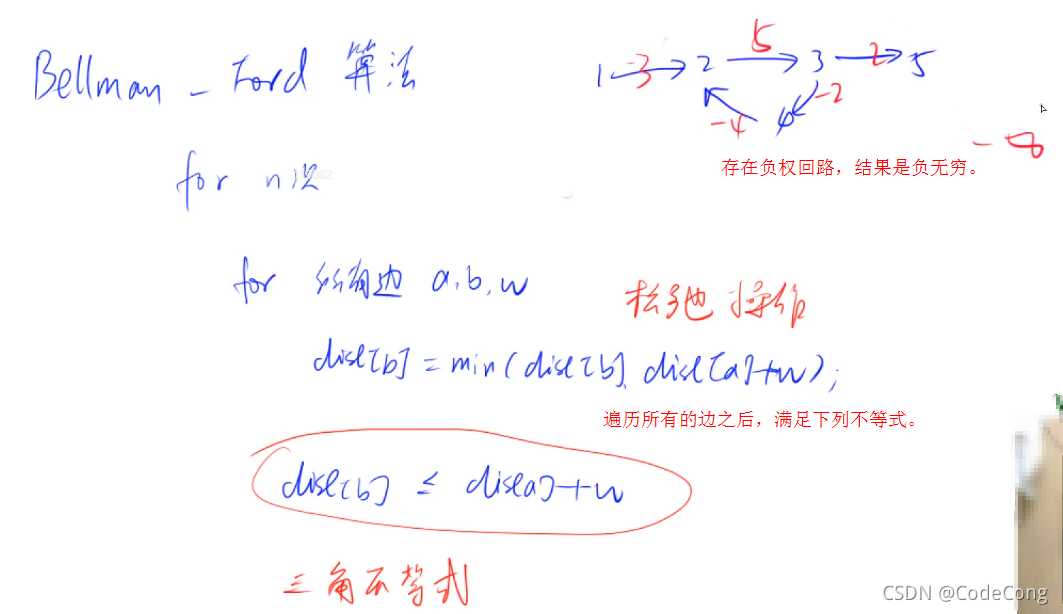 Bellman - Ford 算法
1 3 2 5 3 2 5
-4 4 -2
-∞
存在负权回路，结果是负无穷。
for n次
for 所有边 a,b,w
松弛操作
dist[b] = min(dist[b], dist[a]+w);
遍历所有的边之后，满足下列不等式。
dist[b] ≤ dist[a]+w
三角不等式
CSDN @CodeCong